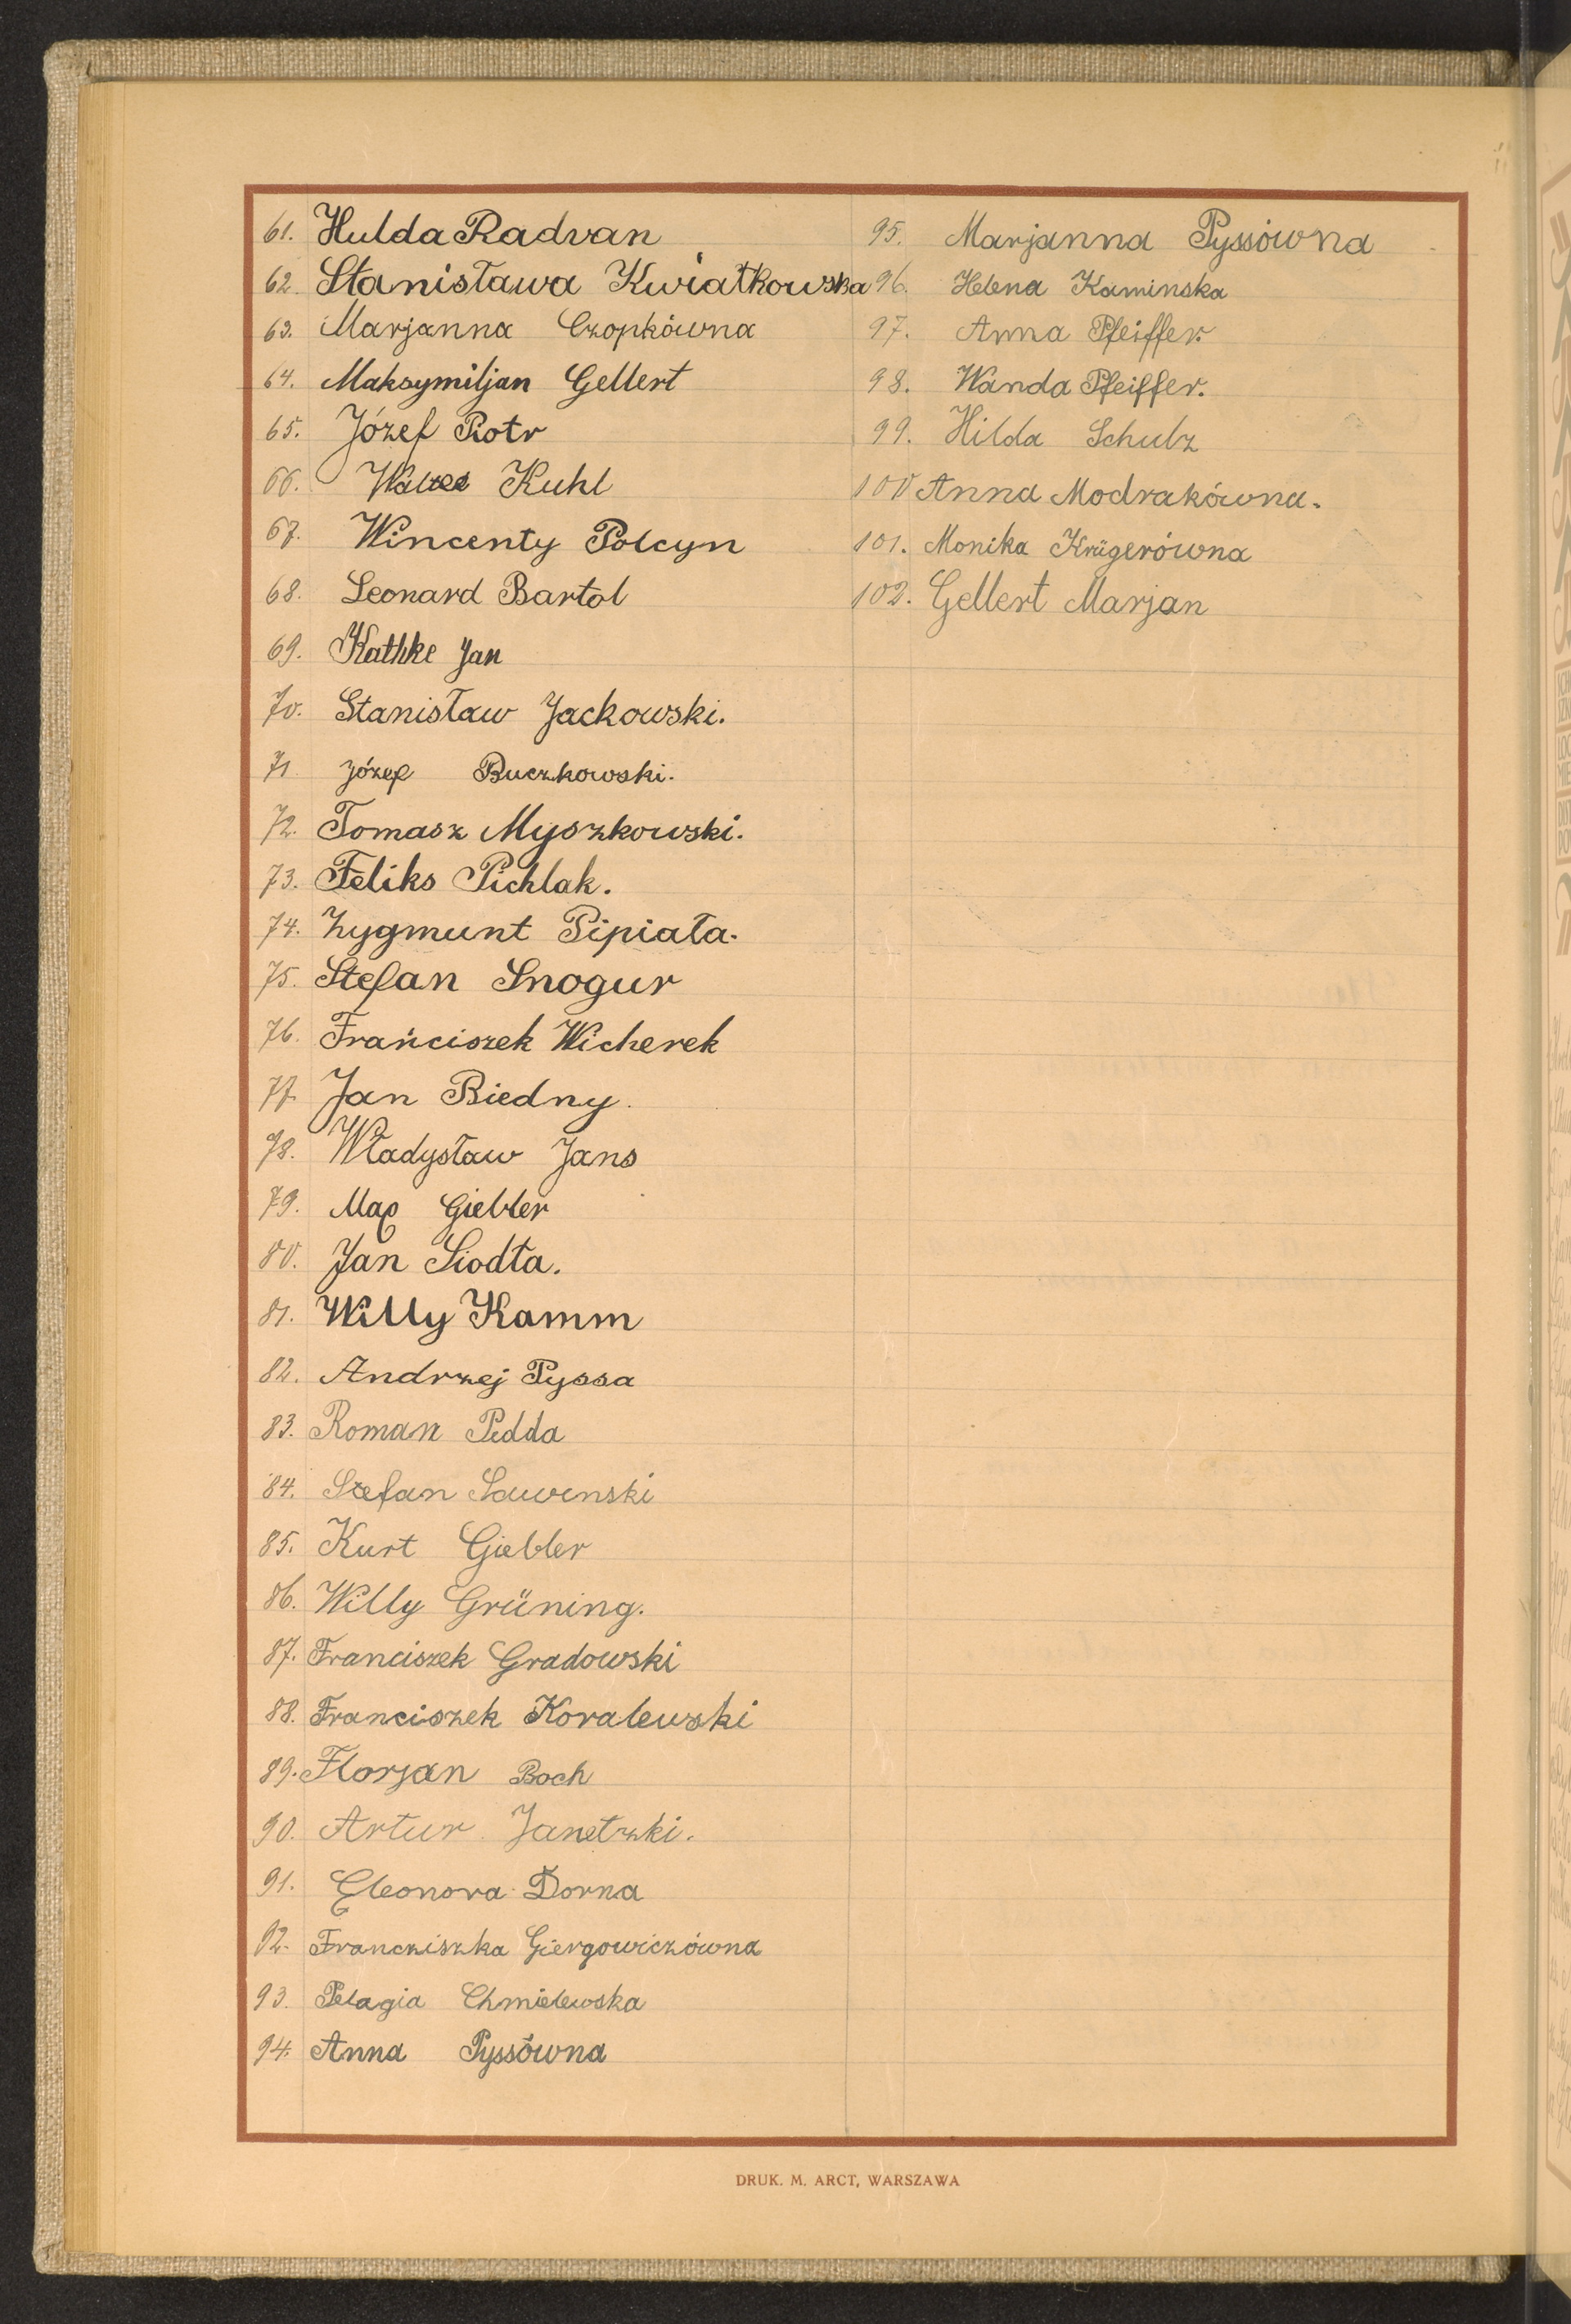 61. Hulda Radvan
62. Stanisława Kwiatkowska
63. Marjanna Czopkówna
64. Maksymiljan Gellert
65. Józef Piotr
66. Kuhl
67. Wincenty Połcyn
68. Leonard Bartol
69. Kathke Jan
70. Stanisław Jackowski.
71. Józef Buczkowski.
72. Tomasz Myszkowski.
73. Feliks Pichlak.
74. Zygmunt Pipiała.
75. Stefan Snogur
76. Franciszek Wicherek
77. Jan Biedny.
78. Władysław Jans
79. Max Giebler
80. Jan Siodła.
81. Willy Kamm
82. Andrzej Pyssa
83. Roman Pedda
84. Stefan Sawenski
85. Kurt Giebler
86. Willy Grüning.
87. Franciszek Gradowski
88. Franciszek Kovalewski
89. Florjan Boch
90. Artur Janetzki.
91. Eleonora Dorna
92. Francziszka Giergowiczówna
93. Pelagia Chmielewska
94. Anna Pyssówna
95. Marjanna Pyssówna
96. Helena Kaminska
97. Anna Pfeiffer.
98. Wanda Pfeiffer.
99. Hilda Schulz
100 Anna Modrakówna.
101. Monika Krügerówna
102. Gellert Marjan
DRUK. M. ARCT, WARSZAWA